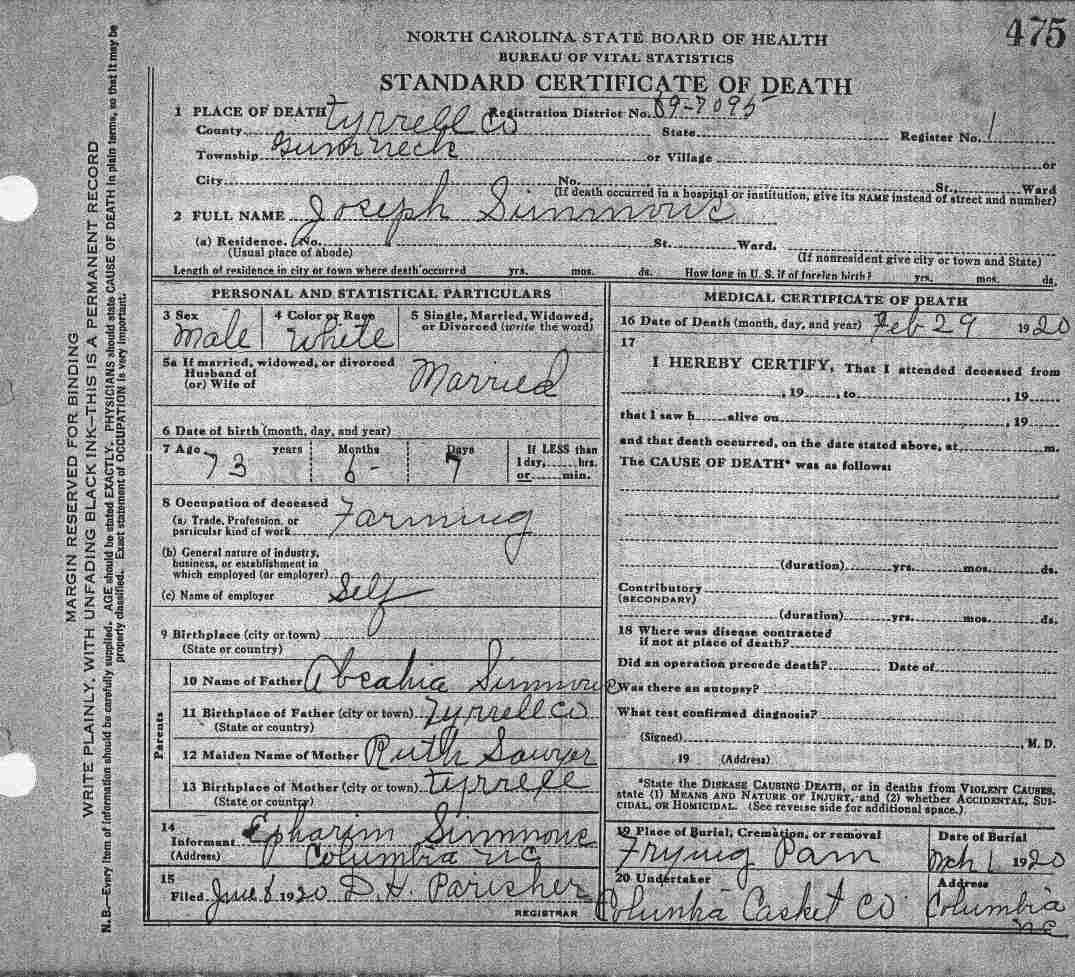 475
NORTH CAROLINA STATE BOARD OF HEALTH
BUREAU OF VITAL STATISTICS
STANDARD CERTIFICATE OF DEATH
1 PLACE OF DEATH Registration District No. 89-7095
County Tyrrell Co State Register No. 1
Township Gum Neck or Village or
City No. St., Ward
(If death occurred in a hospital or institution, give its NAME instead of street and number)
2 FULL NAME Joseph Simmons
(a) Residence. No. St., Ward.
(Usual place of abode) (If nonresident give city or town and State)
Length of residence in city or town where death occurred yrs. mos. ds. How long in U. S. if of foreign birth? yrs. mos. ds.
PERSONAL AND STATISTICAL PARTICULARS
3 Sex 4 Color or Race 5 Single, Married, Widowed,
or Divorced (write the word)
Male White
5a If married, widowed, or divorced
Husband of
(or) Wife of Married
6 Date of birth (month, day, and year)
7 Age years Months Days If LESS than
73 6- 7 1 day, hrs.
or min.
8 Occupation of deceased
(a) Trade, Profession, or
particular kind of work Farming
(b) General nature of industry,
business, or establishment in
which employed (or employer)
(c) Name of employer Self
9 Birthplace (city or town)
(State or country)
Parents
10 Name of Father Abcahia Simmons
11 Birthplace of Father (city or town) Tyrrell Co
(State or country)
12 Maiden Name of Mother Ruth Sawyer
13 Birthplace of Mother (city or town) Tyrrell
(State or country)
14
Informant Epharim Simmons
(Address) Columbia NC
15
Filed June 8 1920 D. H. Parisher
REGISTRAR
MEDICAL CERTIFICATE OF DEATH
16 Date of Death (month, day, and year) Feb 29 1920
17
I HEREBY CERTIFY, That I attended deceased from
, 19 , to , 19
that I saw h alive on , 19
and that death occurred, on the date stated above, at m.
The CAUSE OF DEATH* was as follows:
(duration) yrs. mos. ds.
Contributory
(SECONDARY)
(duration) yrs. mos. ds.
18 Where was disease contracted
if not at place of death?
Did an operation precede death? Date of
Was there an autopsy?
What test confirmed diagnosis?
(Signed) , M. D.
, 19 (Address)
*State the DISEASE CAUSING DEATH, or in deaths from VIOLENT CAUSES,
state (1) MEANS AND NATURE OF INJURY, and (2) whether ACCIDENTAL, SUI-
CIDAL, OR HOMICIDAL. (See reverse side for additional space.)
19 Place of Burial, Cremation, or removal Date of Burial
Frying Pam Mch 1 1920
20 Undertaker Address
Columbia Casket Co Columbia
NC
MARGIN RESERVED FOR BINDING
WRITE PLAINLY, WITH UNFADING BLACK INK—THIS IS A PERMANENT RECORD
N. B.—Every item of information should be carefully supplied. AGE should be stated EXACTLY. PHYSICIANS should state CAUSE OF DEATH in plain terms, so that it may be
properly classified. Exact statement of OCCUPATION is very important.